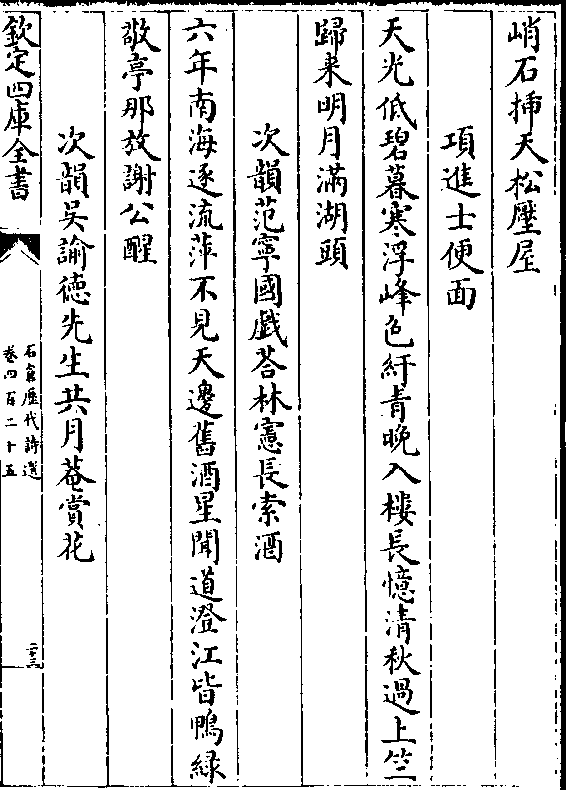 峭石揷天松壓屋
項進士便面
天光低碧暮寒浮峰色紆青晚入樓長憶清秋過上竺
歸來明月滿湖頭
次韻范寧國戯荅林憲長索酒
六年南海逐流萍不見天邊舊酒星聞道澄江皆鴨緑
敬亭那放謝公醒
次韻吳諭徳先生共月菴賞花
欽定四庫全書
石倉歴代詩選
卷四百二十五
二十三